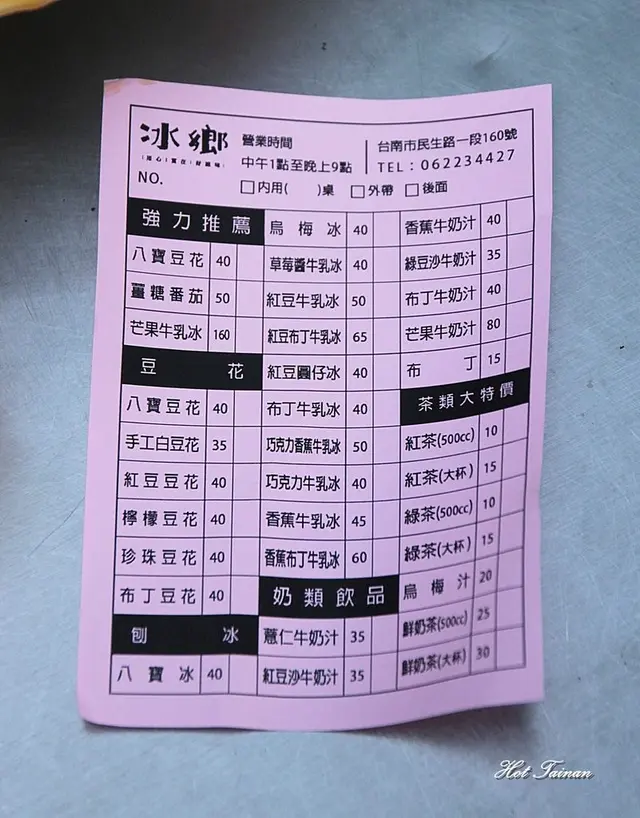 冰鄉
營業時間
中午1點至晚上9點
台南市民生路一段160號
TEL：062234427
NO.
□內用(　　)桌 □外帶 □後面
強力推薦
八寶豆花 40
薑糖番茄 50
芒果牛乳冰 160
豆花
八寶豆花 40
手工白豆花 35
紅豆豆花 40
檸檬豆花 40
珍珠豆花 40
布丁豆花 40
刨冰
八寶冰 40
烏梅冰 40
草莓醬牛乳冰 40
紅豆牛乳冰 50
紅豆布丁牛乳冰 65
紅豆圓仔冰 40
布丁牛乳冰 40
巧克力香蕉牛乳冰 50
巧克力牛乳冰 40
香蕉牛乳冰 45
香蕉布丁牛乳冰 60
奶類飲品
薏仁牛奶汁 35
紅豆沙牛奶汁 35
香蕉牛奶汁 40
綠豆沙牛奶汁 35
布丁牛奶汁 40
芒果牛奶汁 80
布丁 15
茶類大特價
紅茶(500cc) 10
紅茶(大杯) 15
綠茶(500cc) 10
綠茶(大杯) 15
烏梅汁 20
鮮奶茶(500cc) 25
鮮奶茶(大杯) 30
Hot Tainan